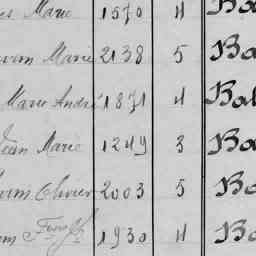 Marie 1570 4 Ba
Marie 2138 5 Ba
Marie André 1871 4 Bal
Jean Marie 1249 3 Ba
Olivier 2003 5 Ba
1930 4 Ba